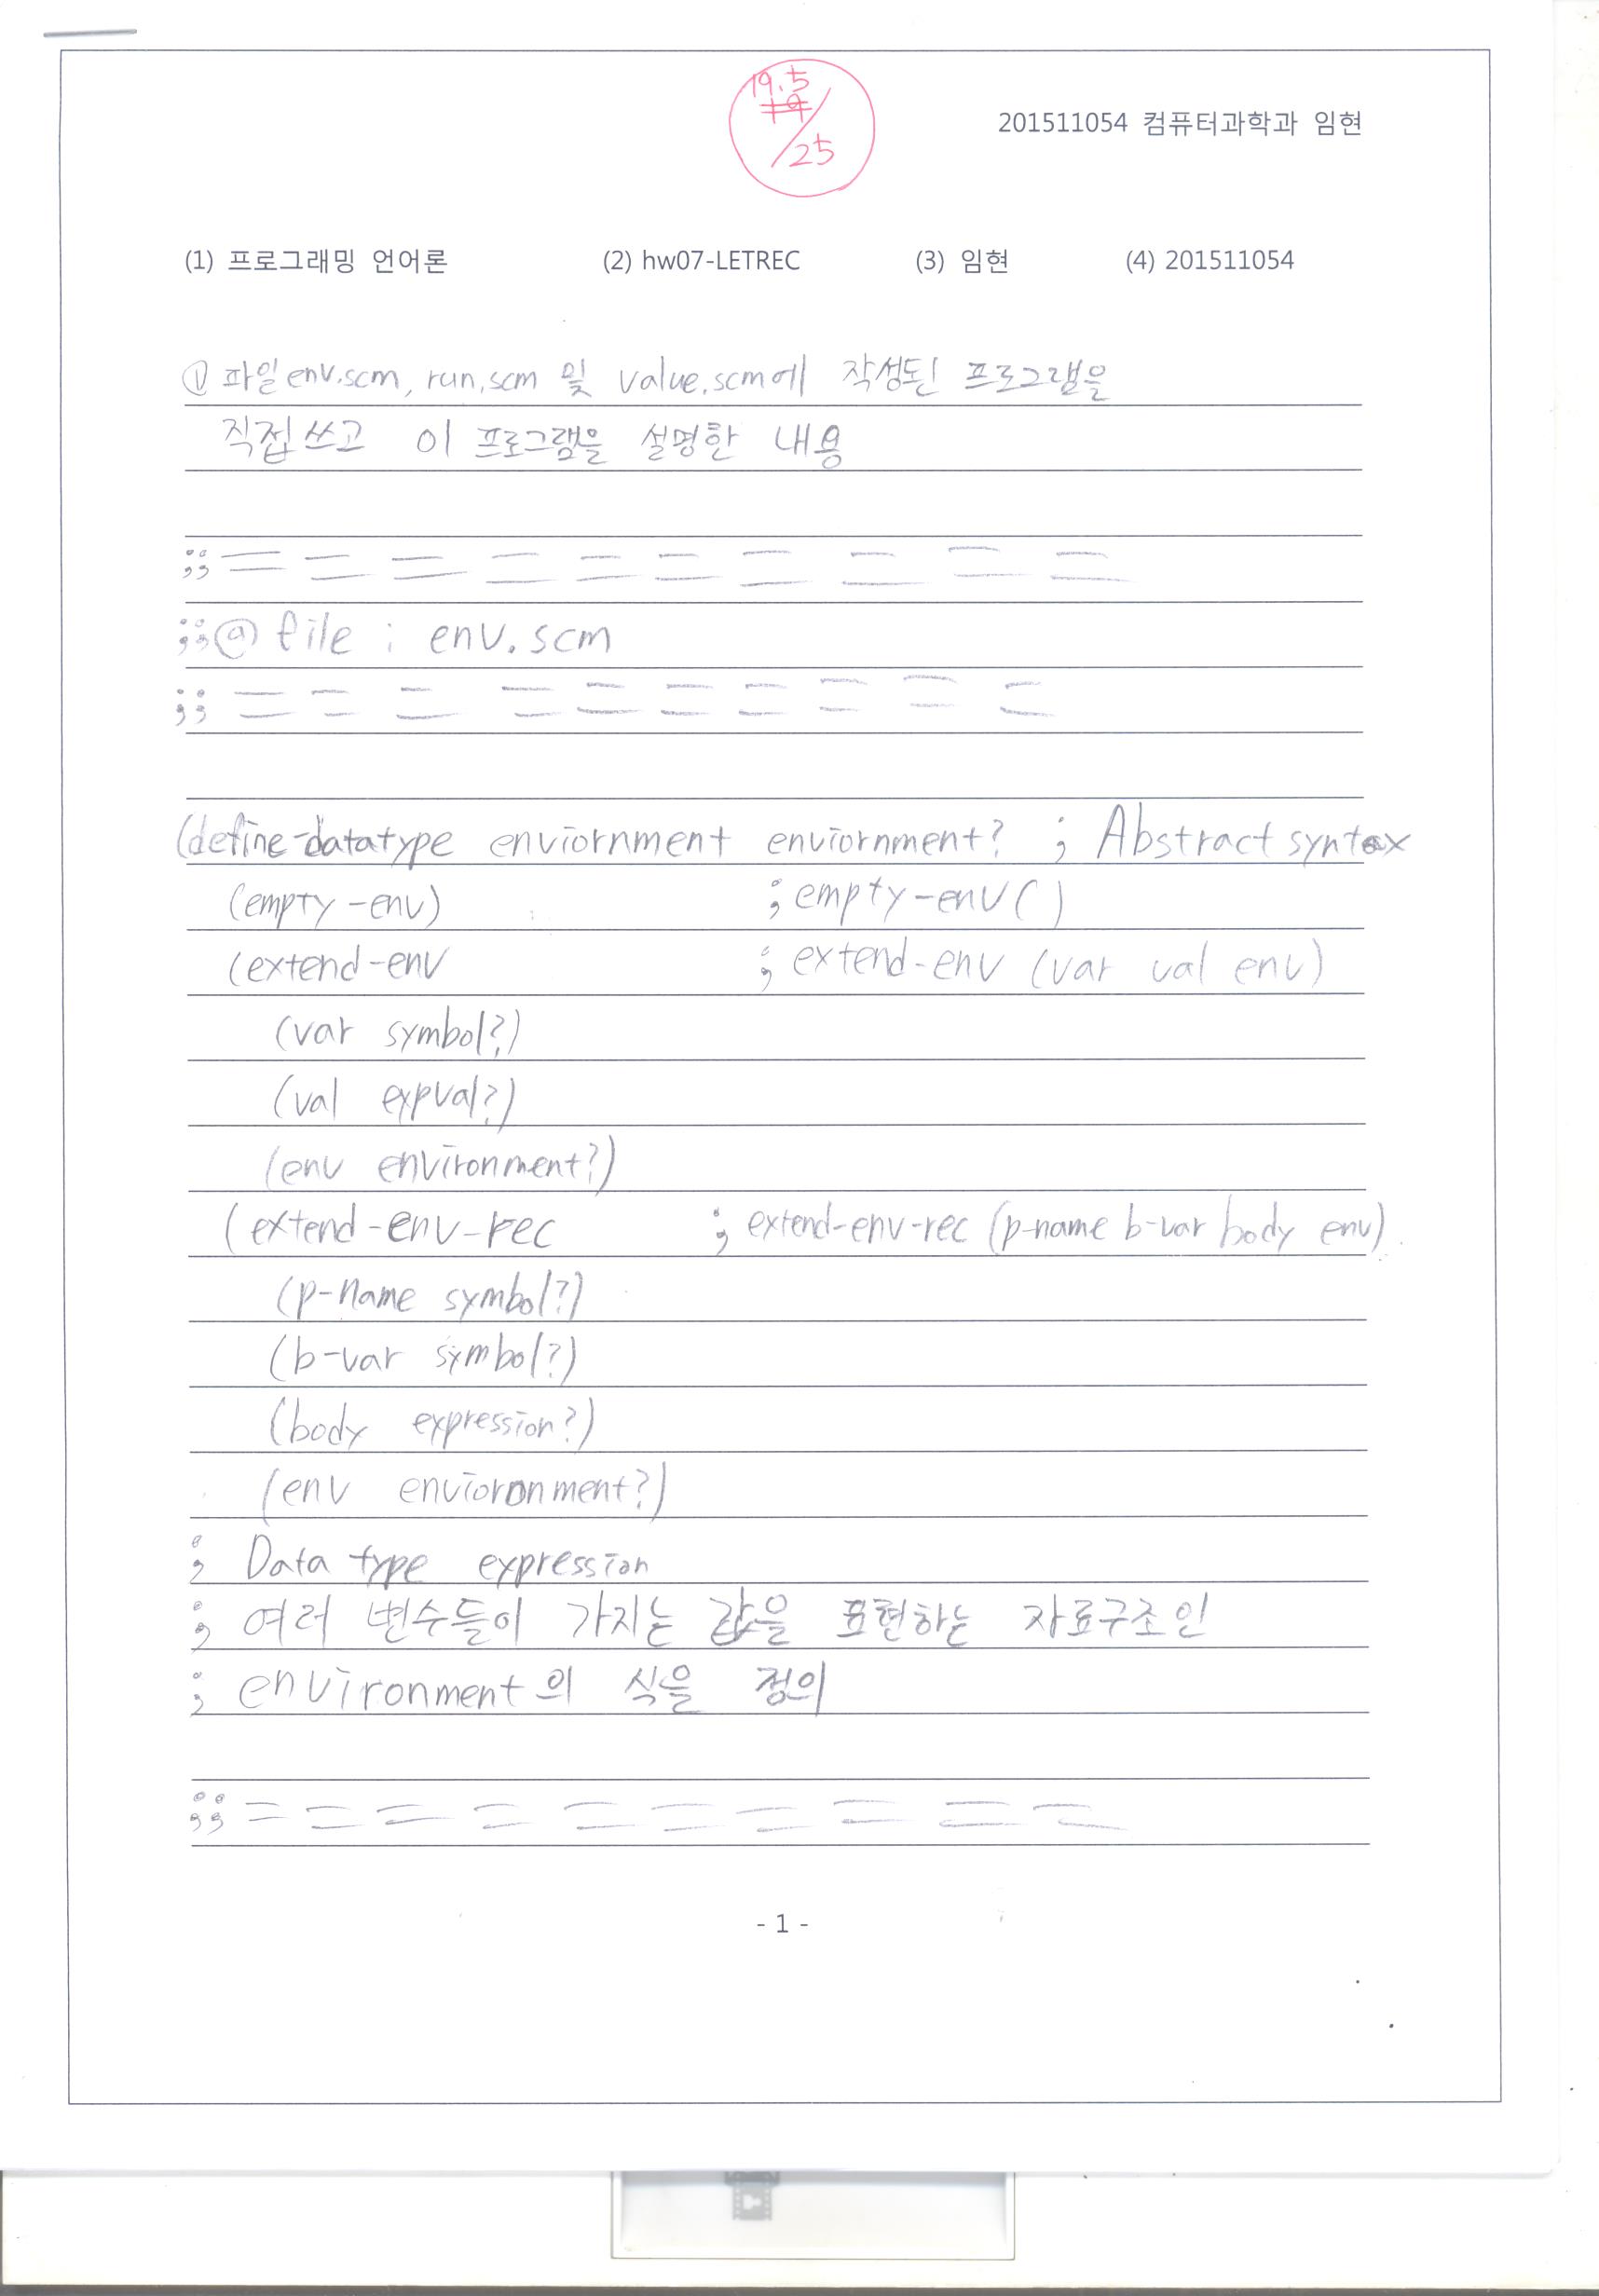 19.5
19/25
201511054 컴퓨터과학과 임현
(1) 프로그래밍 언어론 (2) hw07-LETREC (3) 임현 (4) 201511054
① 파일 env.scm, run.scm 및 value.scm에 작성된 프로그램을
직접쓰고 이 프로그램을 설명한 내용
;; = = = = = = = = = =
;; @ file : env.scm
;; = = = = = = = = = =
(define-datatype enviornment enviornment? ; Abstract syntax
(empty-env) ; empty-env()
(extend-env ; extend-env (var val env)
(var symbol?)
(val expval?)
(env environment?)
(extend-env-rec ; extend-env-rec (p-name b-var body env)
(p-name symbol?)
(b-var symbol?)
(body expression?)
(env envioronment?)
; Data type expression
; 여러 변수들이 가지는 값을 표현하는 자료구조인
; environment의 식을 정의
;; = = = = = = = = = =
- 1 -